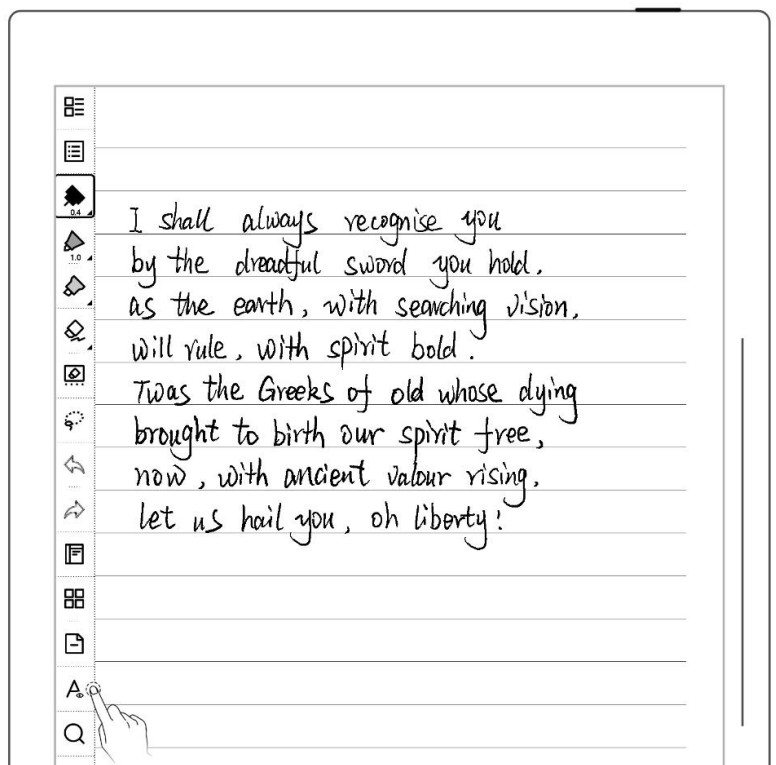 0.4
1.0
I shall always recognise you
by the dreadful sword you hold.
as the earth, with searching vision,
will rule, with spirit bold.
Twas the Greeks of old whose dying
brought to birth our spirit free,
now, with ancient valour rising,
let us hail you, oh liberty!